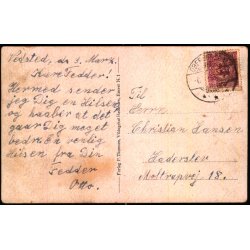 Vedsted, den 3. Marts.
Kære Fedder!
Hermed sender
jeg Dig en Hilsen
og haaber at det
gaar Dig meget
bedre. En venlig
Hilsen fra Din
Fedder
Otto.
Til
Herrn
Christian Hansen
Haderslev
Moltrupvej 18.